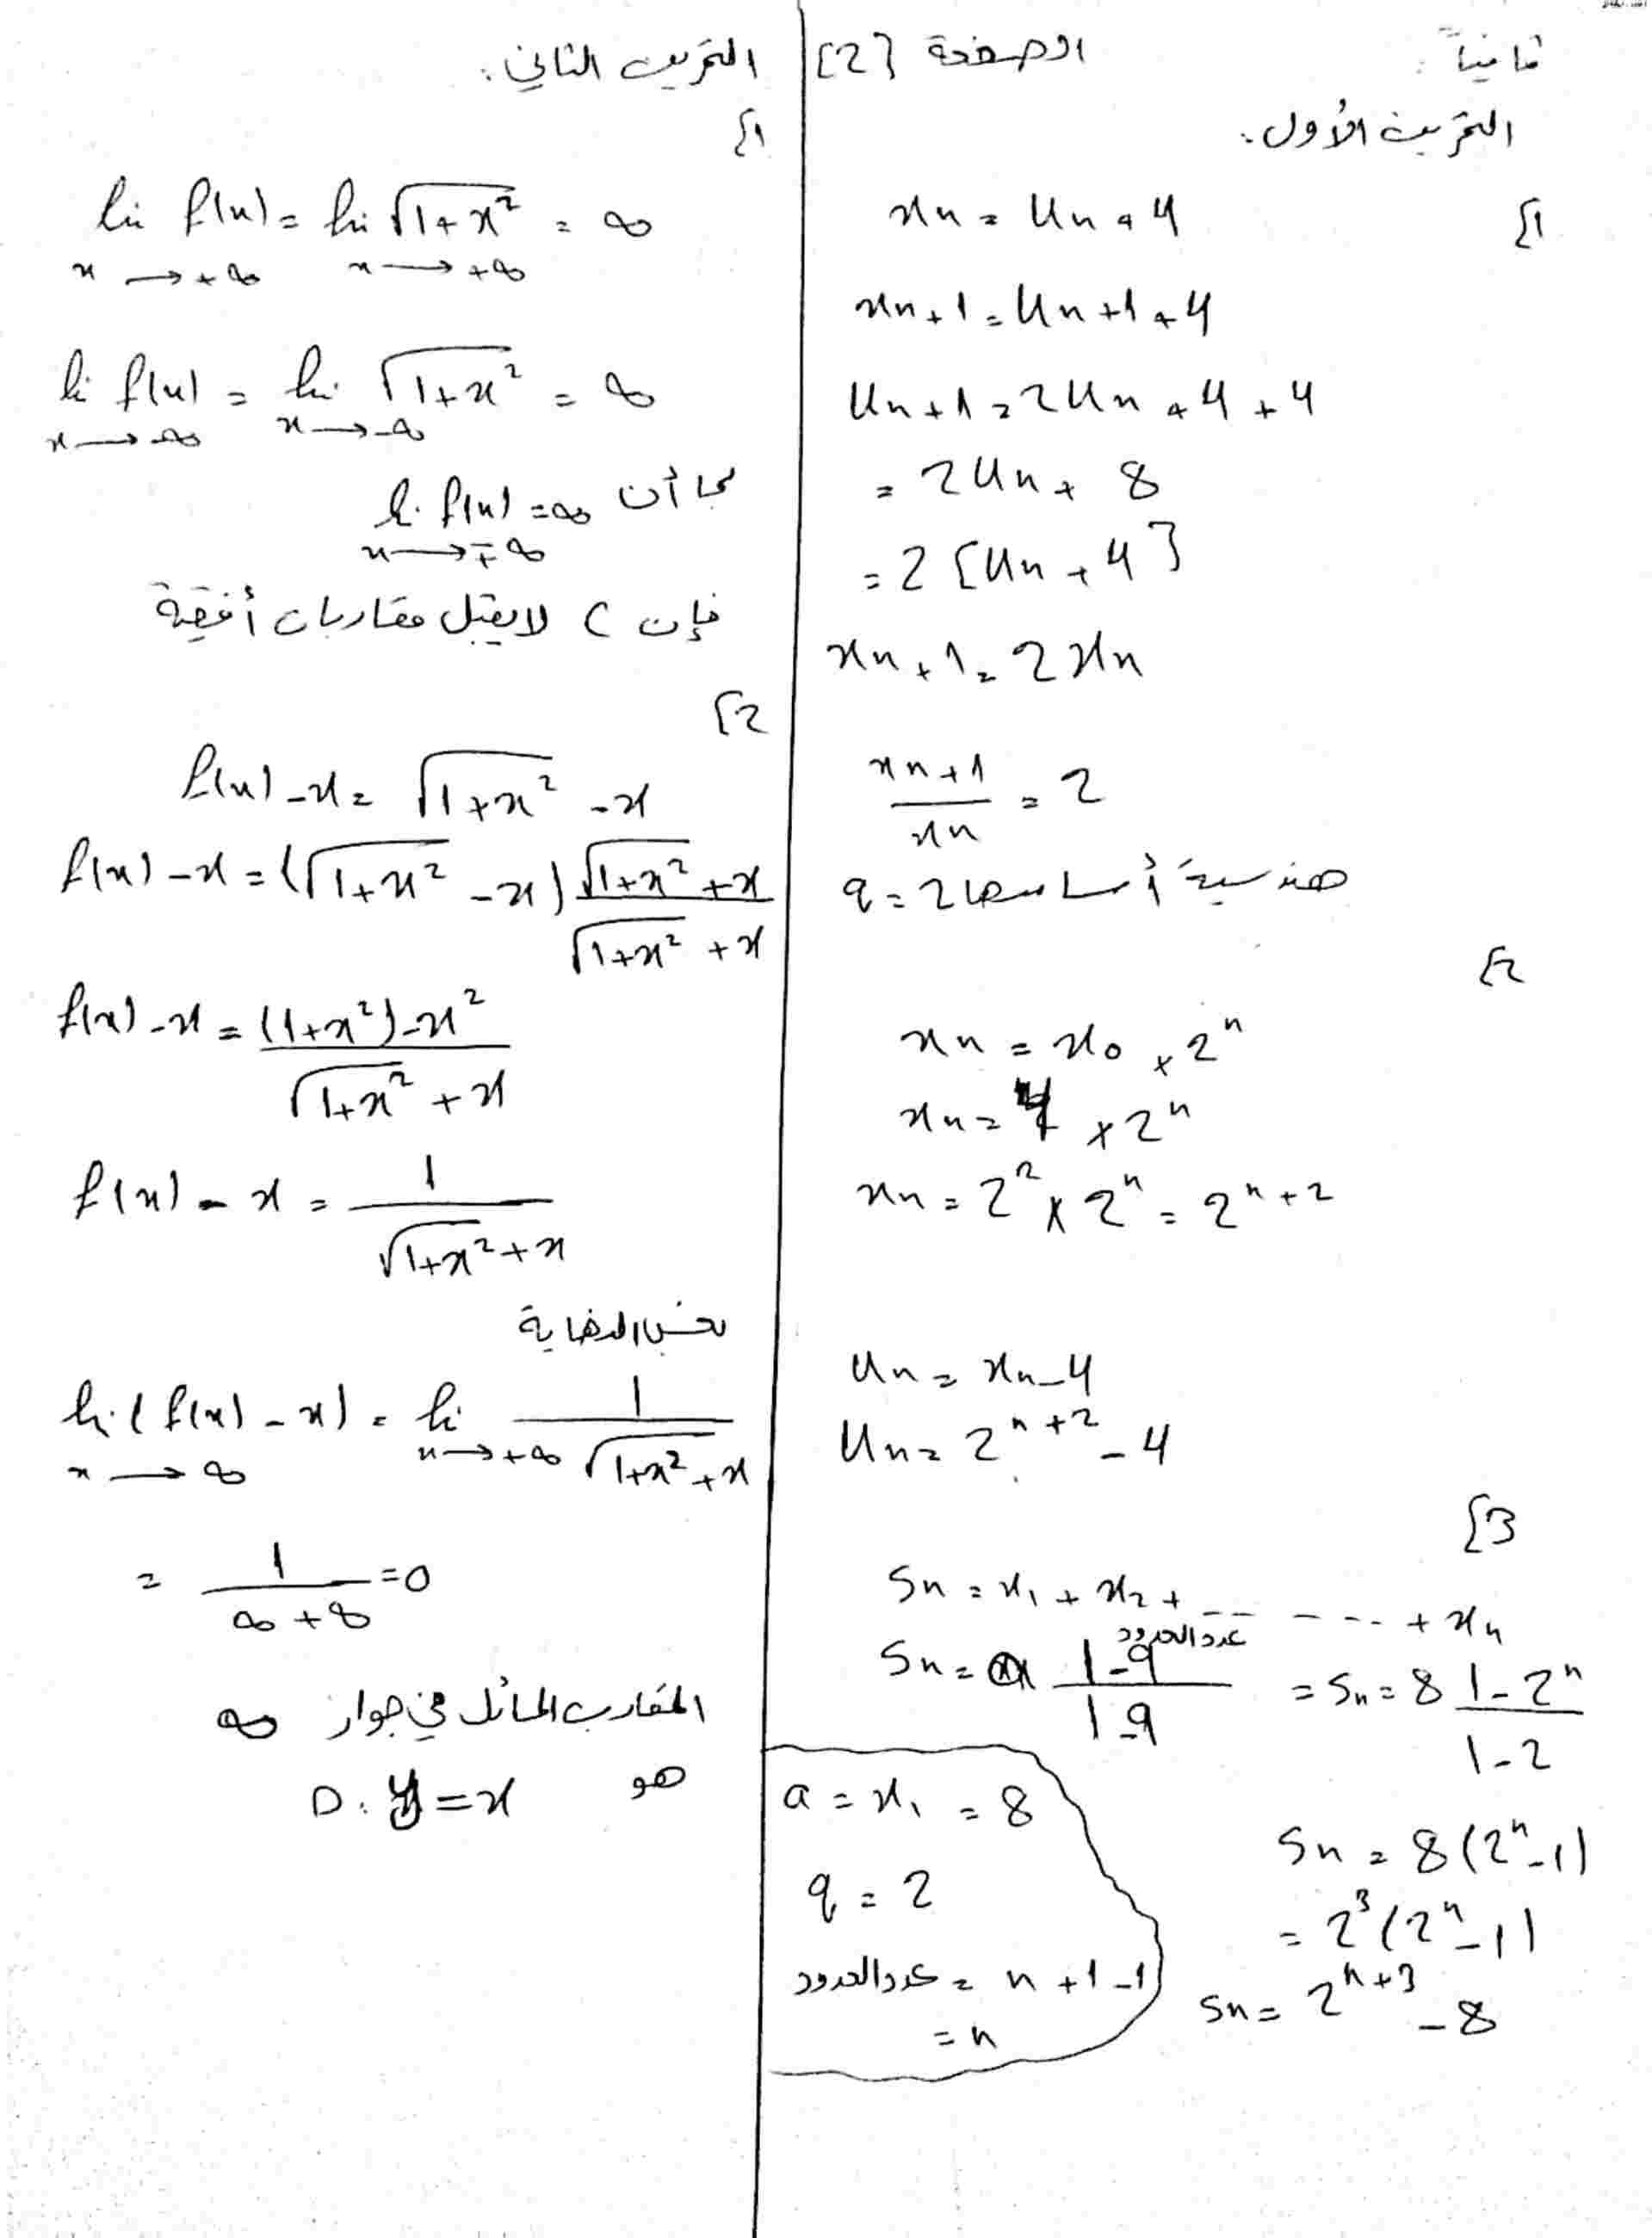 ثانياً :
الصفحة [2]
التمرين الأول :
1]
xn = Un + 4
xn+1 = Un+1 + 4
Un+1 = 2Un + 4 + 4
= 2Un + 8
= 2[Un + 4]
xn+1 = 2xn
xn+1 / xn = 2
هندسية أساسها q = 2
2]
xn = x0 × 2^n
xn = 4 × 2^n
xn = 2^2 × 2^n = 2^n+2
Un = xn - 4
Un = 2^n+2 - 4
3]
Sn = x1 + x2 + -- - --- + xn
Sn = a (1-q^عدد الحدود) / (1-q) = Sn = 8 (1-2^n) / (1-2)
a = x1 = 8
q = 2
عدد الحدود = n+1-1
= n
Sn = 8(2^n - 1)
= 2^3(2^n - 1)
Sn = 2^n+3 - 8
التمرين الثاني :
1]
lim f(x) = lim √(1+x²) = ∞
x → +∞ x → +∞
lim f(x) = lim √(1+x²) = ∞
x → -∞ x → -∞
بما أن lim f(x) = ∞
x → ∓∞
فإن C لا يقبل مقاربات أفقية
2]
f(x) - x = √(1+x²) - x
f(x) - x = (√(1+x²) - x) (√(1+x²) + x) / (√(1+x²) + x)
f(x) - x = ((1+x²) - x²) / (√(1+x²) + x)
f(x) - x = 1 / (√(1+x²) + x)
نحسب النهاية
lim (f(x) - x) = lim 1 / (√(1+x²) + x)
x → ∞ x → +∞
= 1 / (∞ + ∞) = 0
المقارب المائل في جوار ∞
هو D : y = x